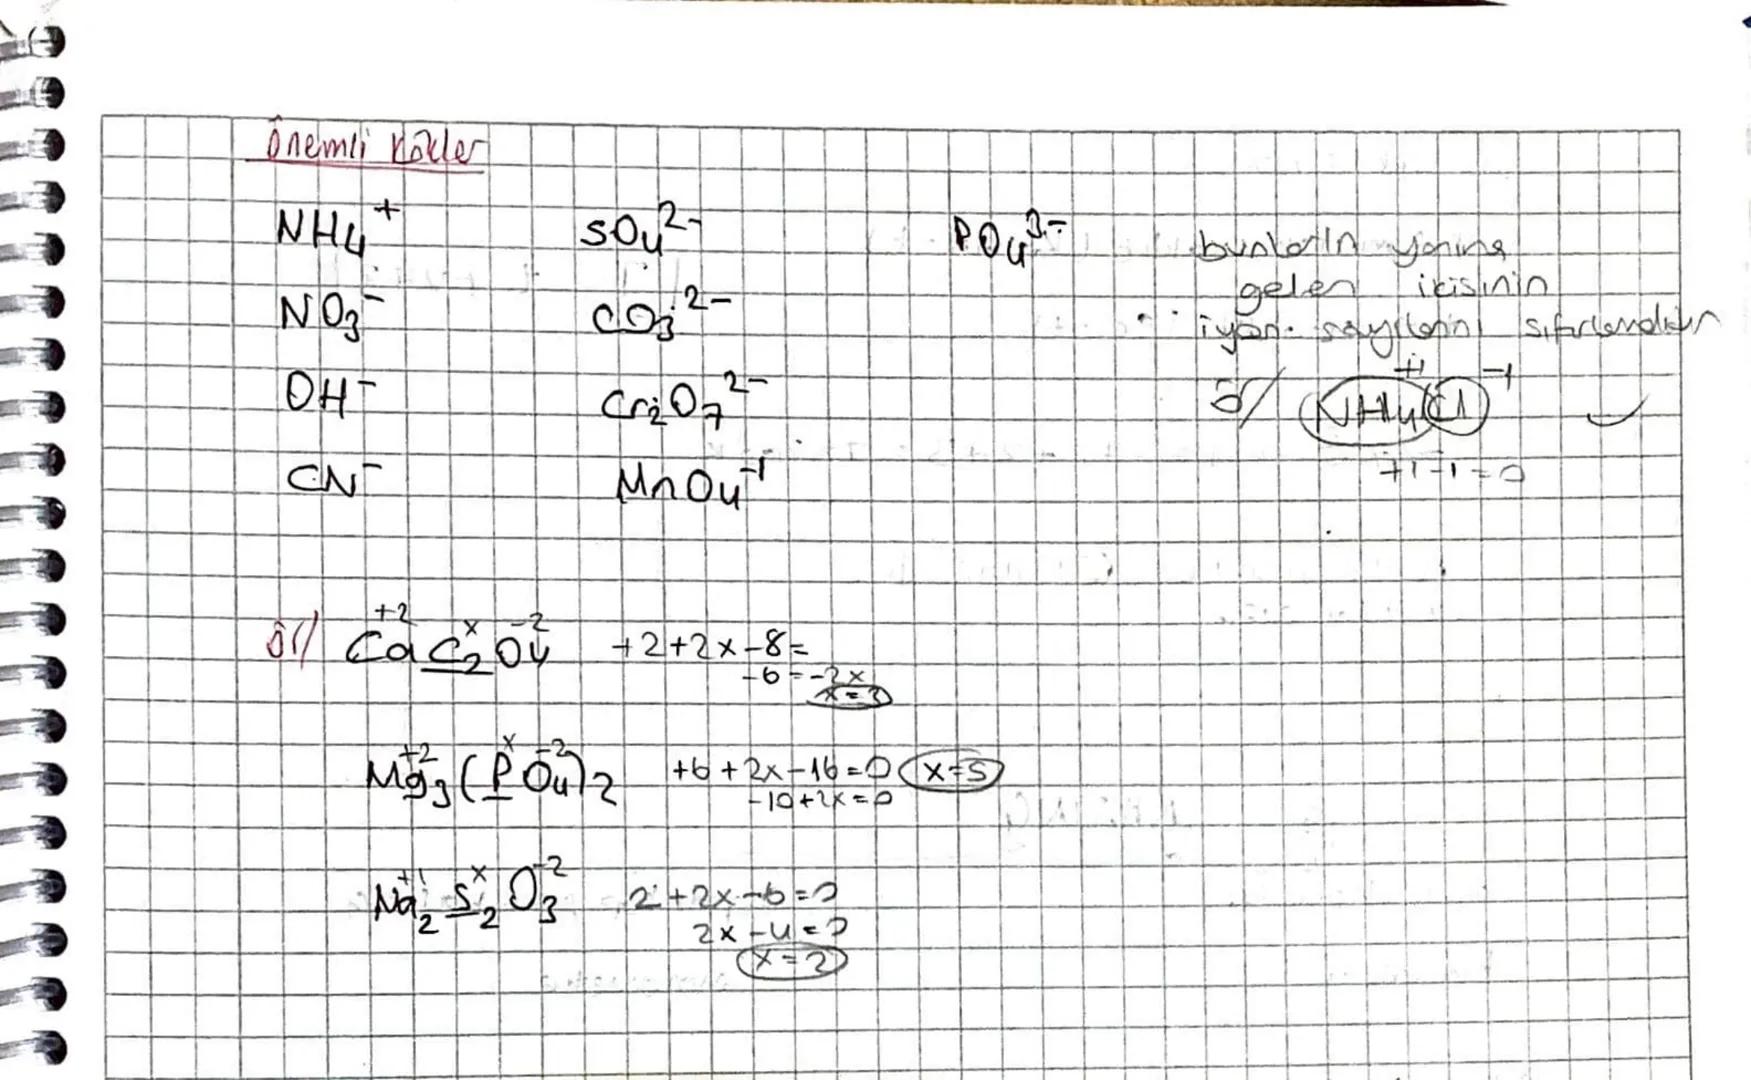 Önemli Kökler
NH4+ SO4 2- PO4 3-
NO3- CO3 2-
OH- Cr2O7 2-
CN- MnO4 -1
bunların yanına
gelen ikisinin
iyon sayılarını sıfırlamalıdır
ö/ NH4Cl +1 -1
+1-1=0
ör/ Ca+2 C2x O4-2 +2+2x-8=
-6=-2x
x=3
Mg3+2(PxO4-2)2 +6+2x-16=0 x=5
-10+2x=0
Na2+1 S2x O3-2 2+2x-6=0
2x-4=0
x=2